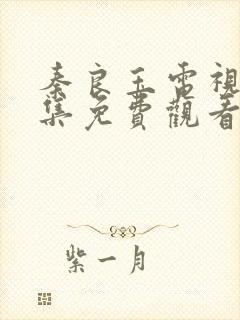 秦良玉電視
集免費觀看
紫一月